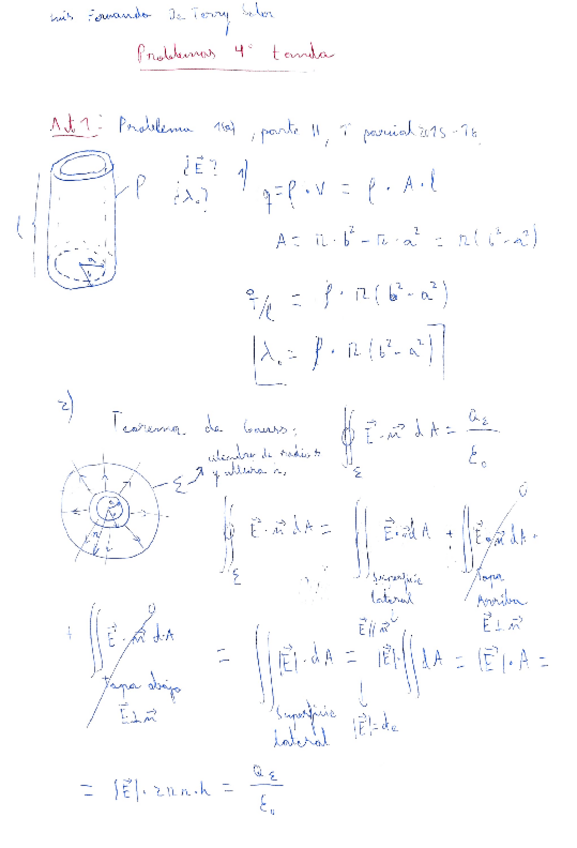 Luis Fernando De Terry Soler
Problemas 4ª tanda
Act 1: Problema , parte II, 1er parcial 2015-16
l
ρ
a
b
¿E⃗?
¿λ₀?
1) q = ρ · V = ρ · A · l
A = π · b² − π · a² = π(b² − a²)
q/l = ρ · π(b² − a²)
λ₀ = ρ · π(b² − a²)
2) Teorema de Gauss: ∯_Σ E⃗ · n⃗ dA = Q_Σ / ε₀
Σ → cilindro de radio r
y altura h
∯_Σ E⃗ · n⃗ dA = ∬ E⃗ · n⃗ dA + ∬ E⃗ · n⃗ dA + 0
Superficie lateral
E⃗ ∥ n⃗
Tapa Arriba
E⃗ ⊥ n⃗
+ ∬ E⃗ · n⃗ dA 0
Tapa abajo
E⃗ ⊥ n⃗
= ∬ |E⃗| · dA = |E⃗| · ∬ dA = |E⃗| · A =
Superficie lateral
|E⃗| = cte
= |E⃗| · 2πr · h = Q_Σ / ε₀